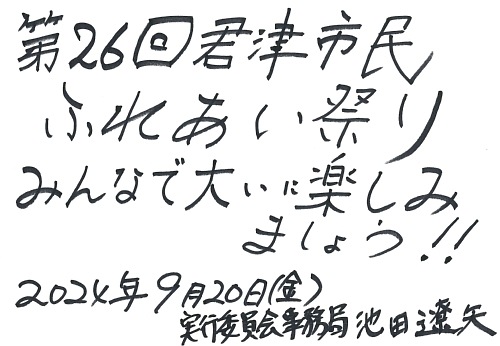 第26回君津市民
ふれあい祭り
みんなで大いに楽しみ
ましょう!!
2024年9月20日(金)
実行委員会事務局池田遼矢